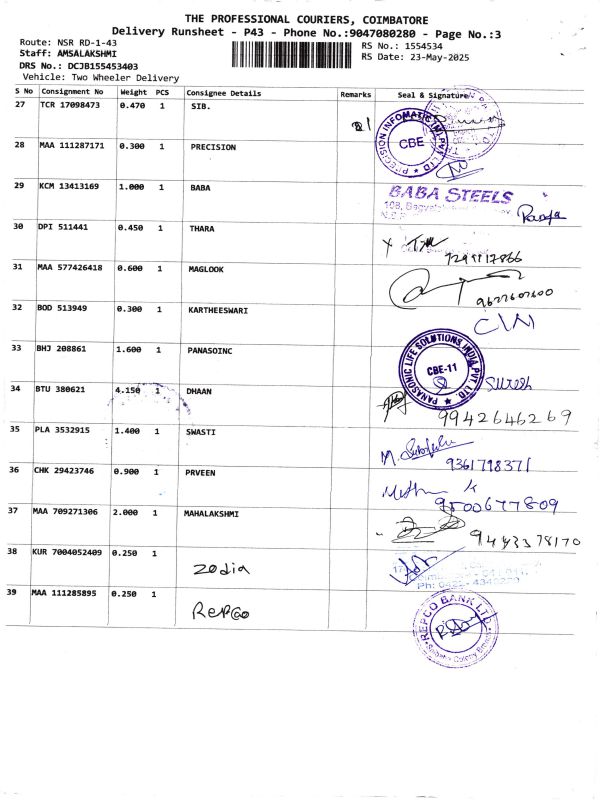 THE PROFESSIONAL COURIERS, COIMBATORE
Delivery Runsheet - P43 - Phone No.:9047080280 - Page No.:3
Route: NSR RD-1-43
RS No.: 1554534
Staff: AMSALAKSHMI
RS Date: 23-May-2025
DRS No.: DCJB155453403
Vehicle: Two Wheeler Delivery
S No Consignment No Weight PCS Consignee Details Remarks Seal & Signature
27 TCR 17098473 0.470 1 SIB.
PRECISION INFOMATIC (M) PVT LTD
CBE
28 MAA 111287171 0.300 1 PRECISION
29 KCM 13413169 1.000 1 BABA
BABA STEELS
30 DPI 511441 0.450 1 THARA
31 MAA 577426418 0.600 1 MAGLOOK
32 BOD 513949 0.300 1 KARTHEESWARI
33 BHJ 208861 1.600 1 PANASOINC
PANASONIC LIFE SOLUTIONS INDIA PVT. LTD.
CBE-11
Suresh
34 BTU 380621 4.150 1 DHAAN
9942646269
35 PLA 3532915 1.400 1 SWASTI
9361798371
36 CHK 29423746 0.900 1 PRVEEN
9500677809
37 MAA 709271306 2.000 1 MAHALAKSHMI
9443378170
38 KUR 7004052409 0.250 1 Zodia
39 MAA 111285895 0.250 1 Repco
REPCO BANK LTD.